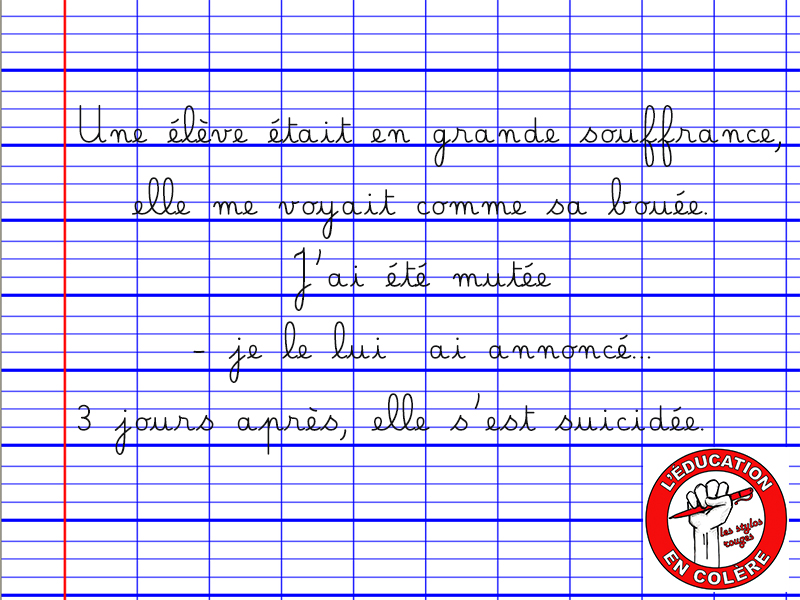 Une élève était en grande souffrance,
elle me voyait comme sa bouée.
J'ai été mutée
- je le lui ai annoncé...
3 jours après, elle s'est suicidée.
L'ÉDUCATION
les stylos
rouges
EN COLÈRE